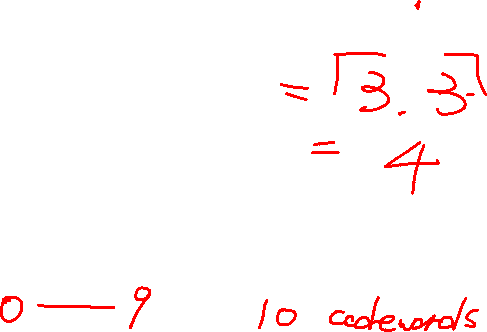 = ⌈3.3⌉
= 4
0 — 9 10 codewords